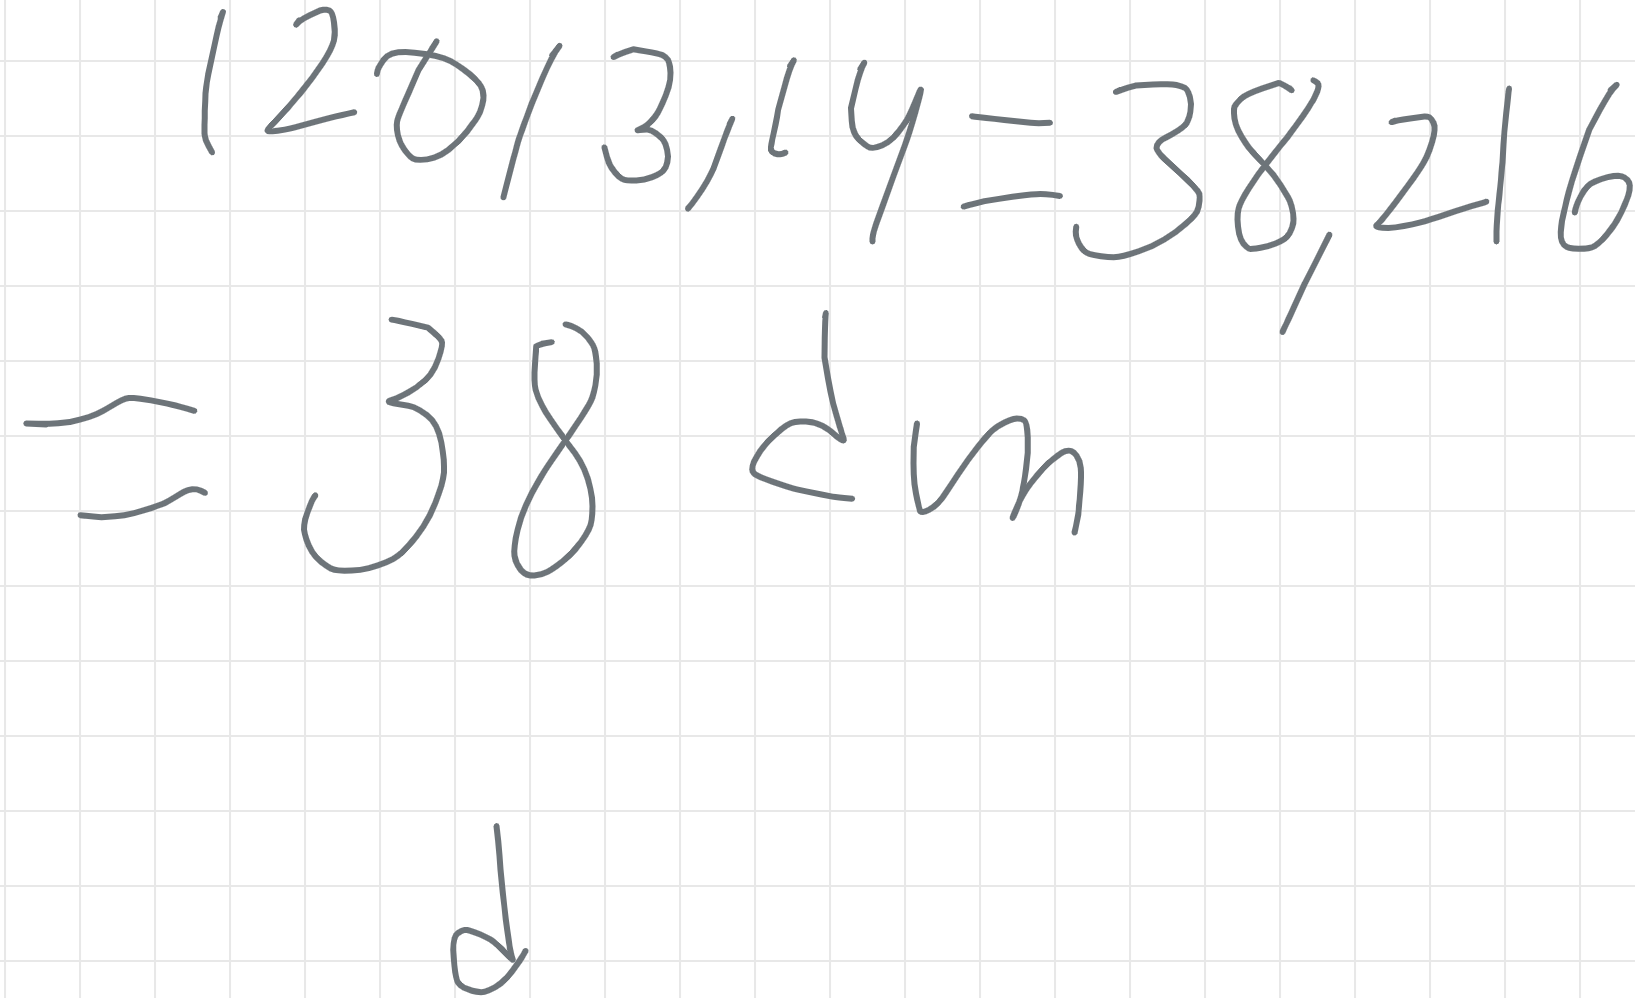 120/3,14=38,216
≈38 dm
d